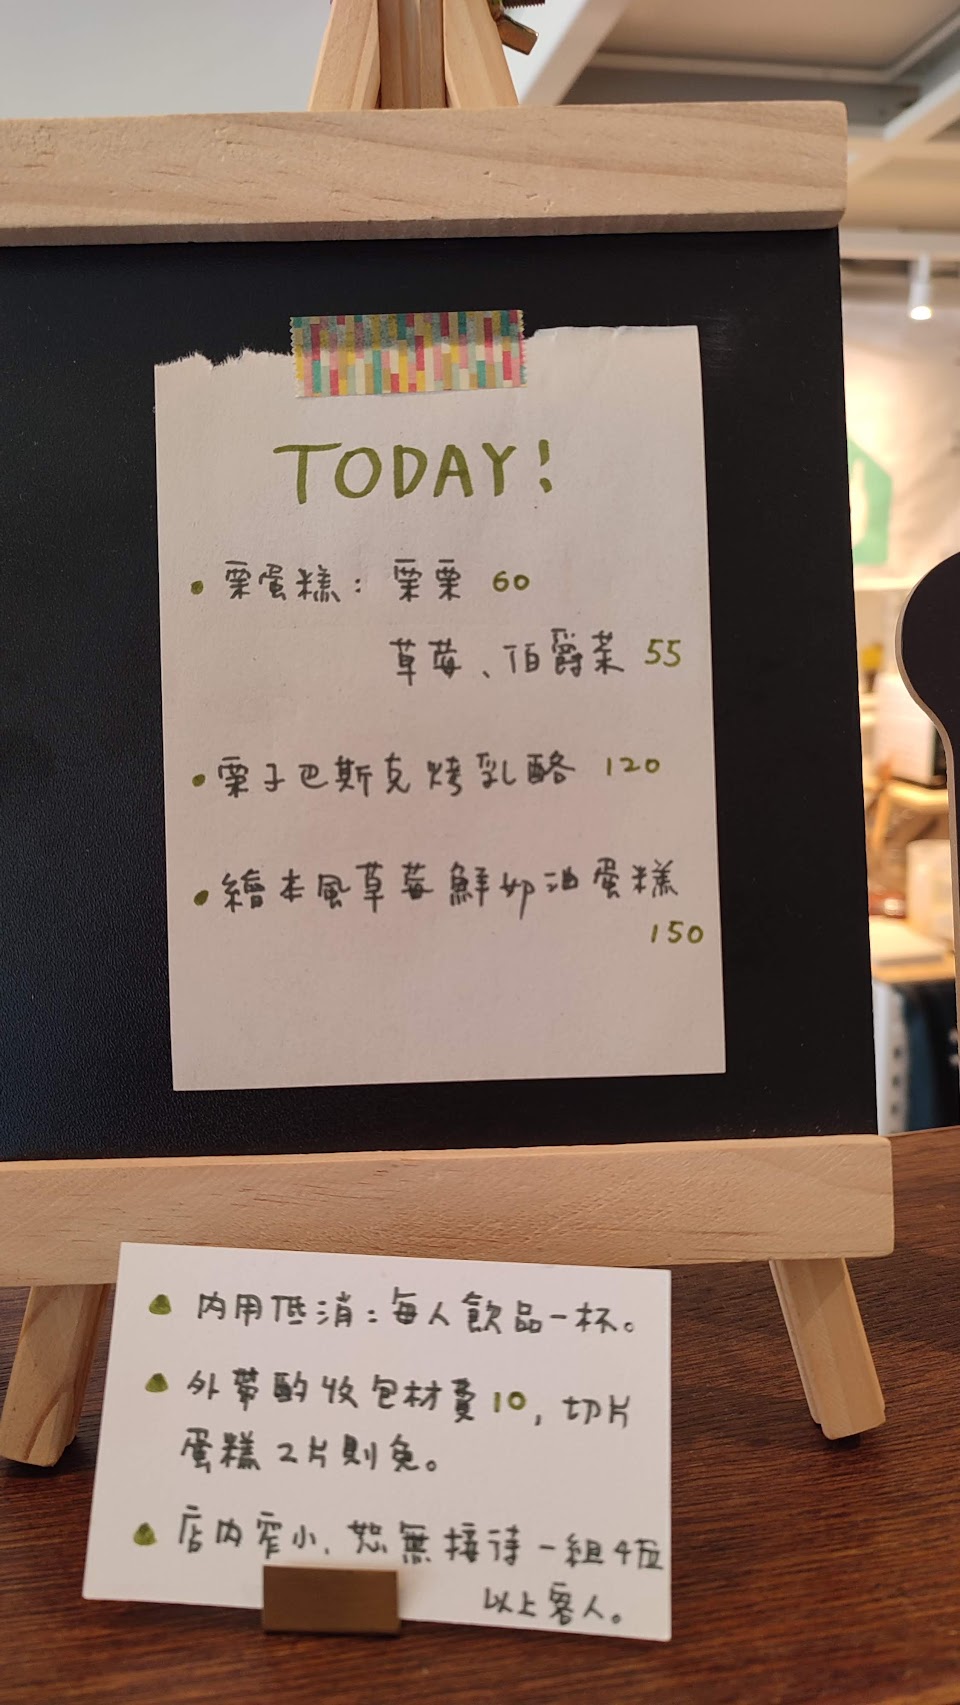 TODAY!
• 栗蛋糕：栗栗 60
草莓、伯爵茶 55
• 栗子巴斯克烤乳酪 120
• 繪本風草莓鮮奶油蛋糕
150
▲ 內用低消：每人飲品一杯。
▲ 外帶酌收包材費10，切片
蛋糕2片則免。
▲ 店內窄小，恕無接待一組4位
以上客人。